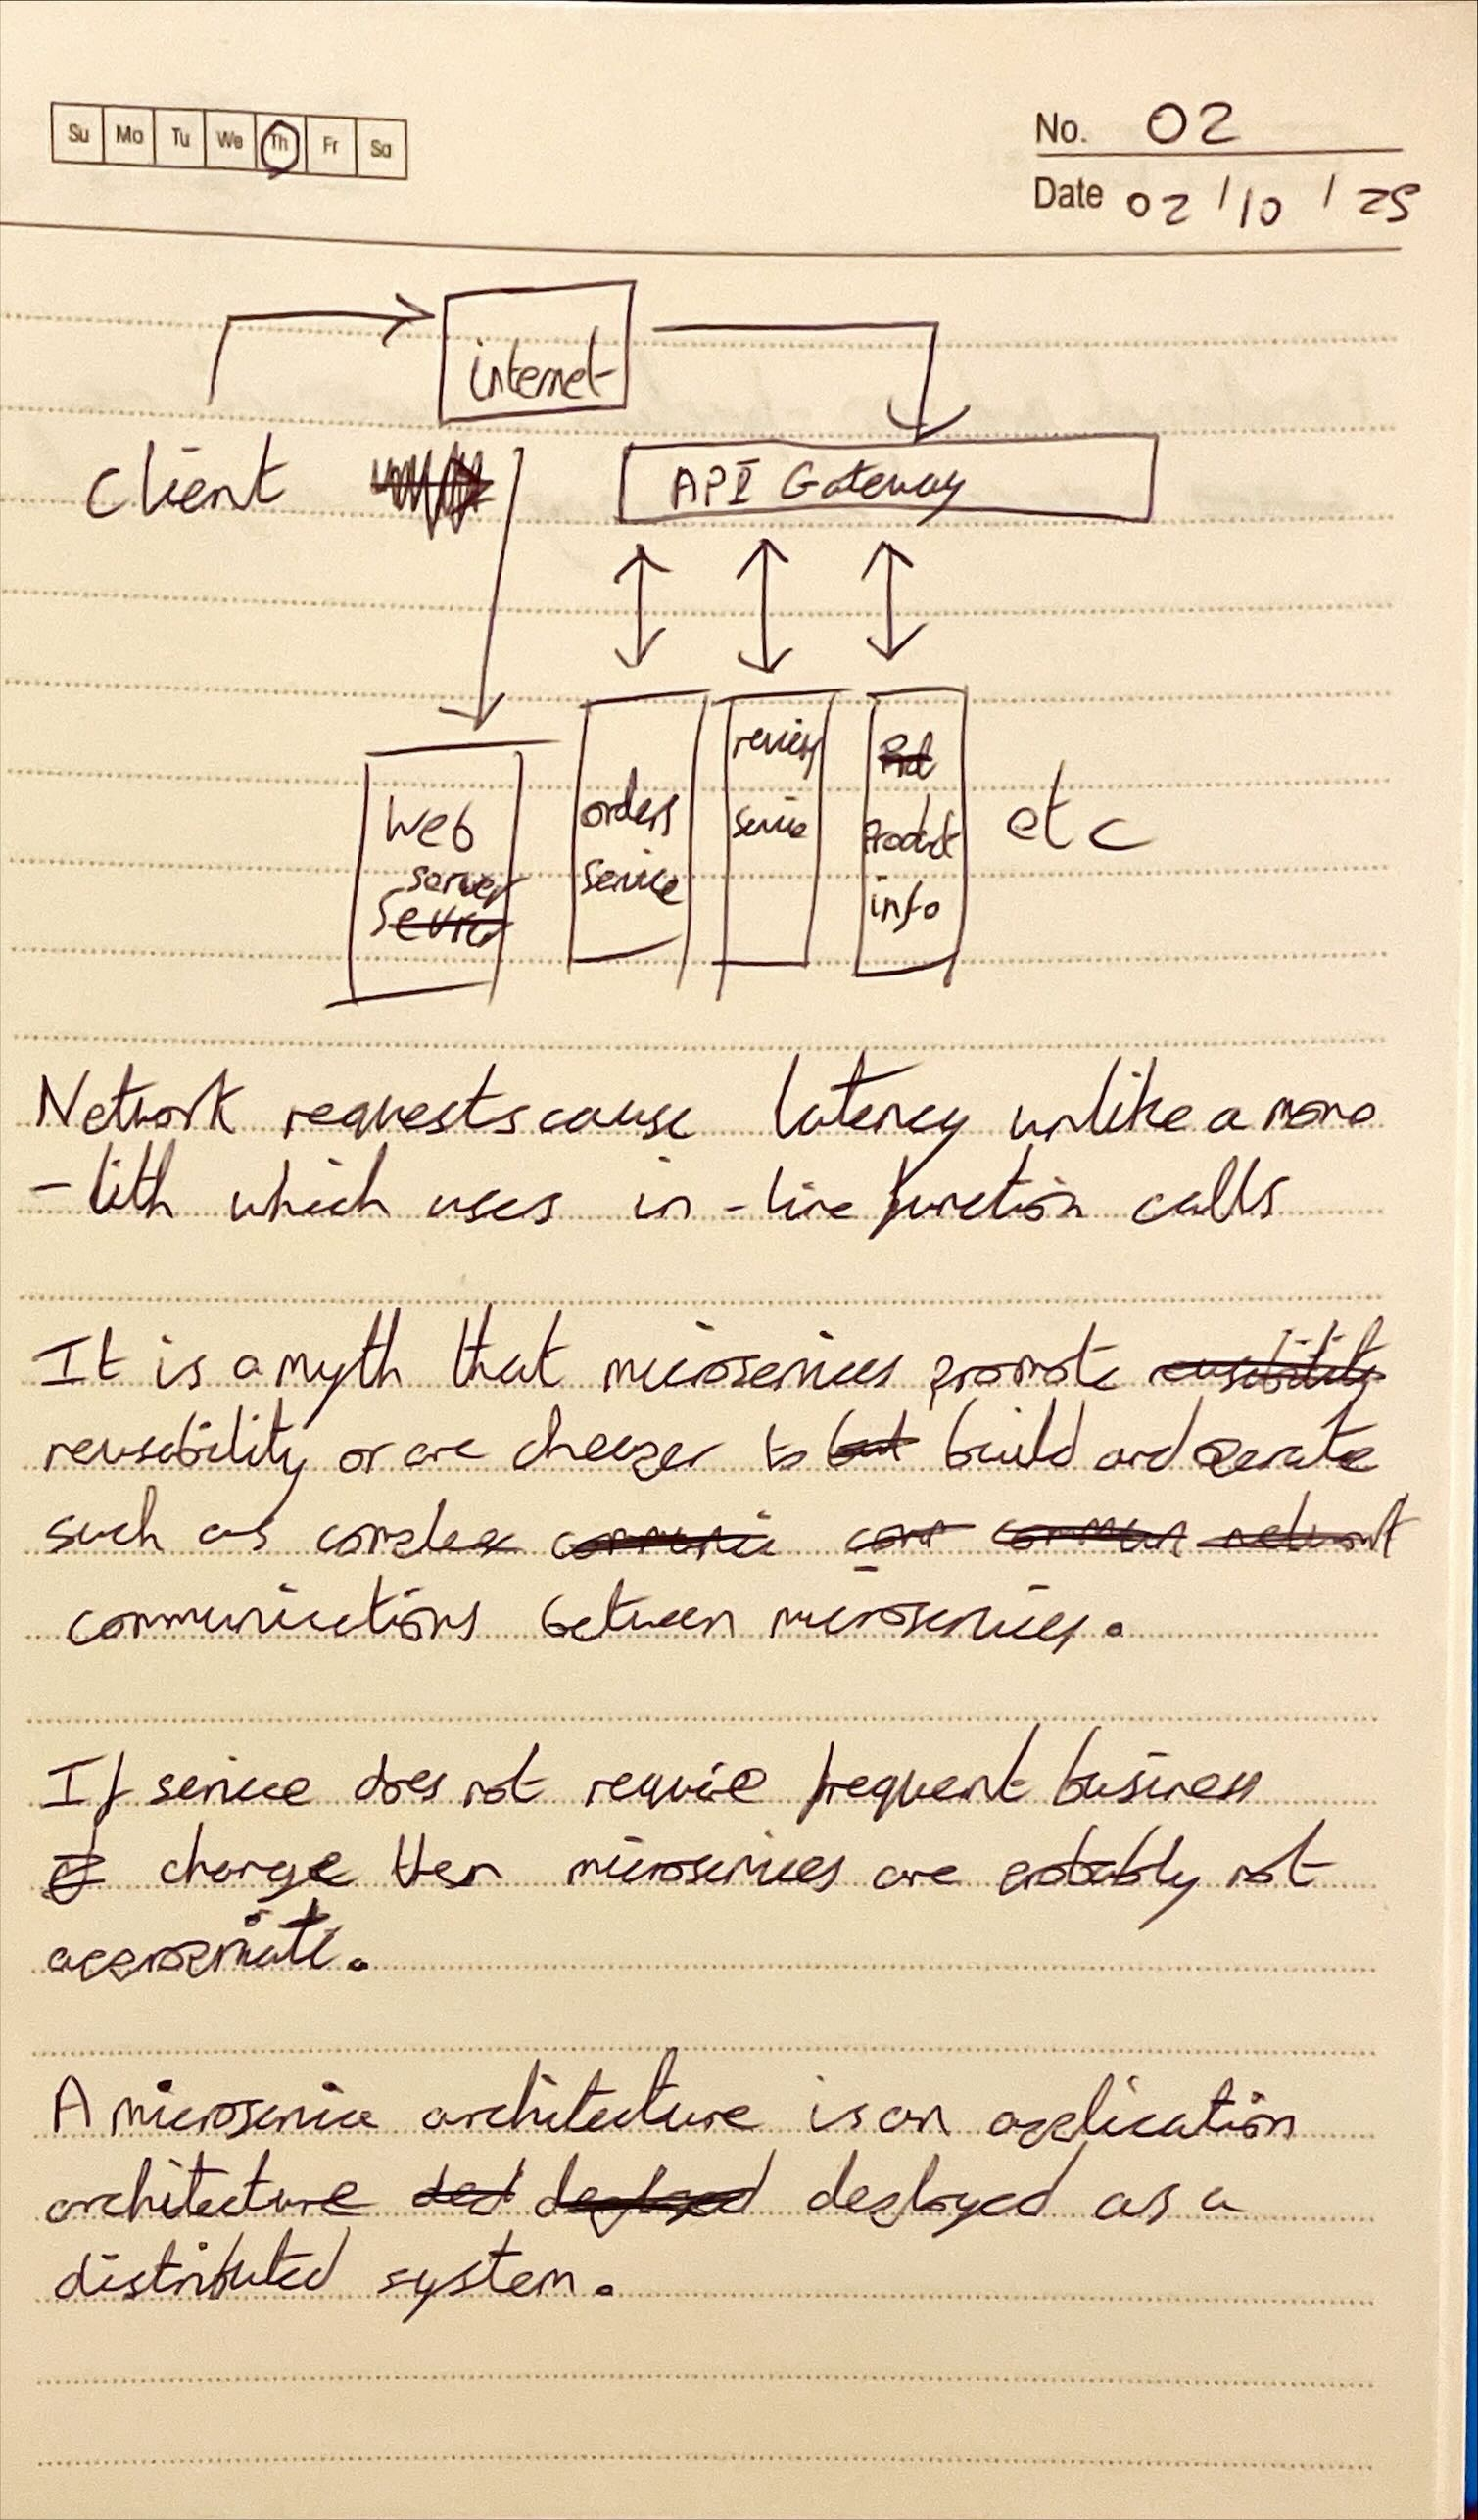 Su Mo Tu We Th Fr Sa
No. 02
Date 02/10/25
internet
client
API Gateway
web
server
orders
service
review
service
Product
info
etc
Network requests cause latency unlike a mono
-lith which uses in-line function calls
It is a myth that microservices promote reusibility
reusability or are cheaper to but build and operate
such as complex communic com commun network
communications between microservices.
If service does not require frequent business
change then microservices are probably not
appropriate.
A microservice architecture is an application
architecture ded deployed deployed as a
distributed system.